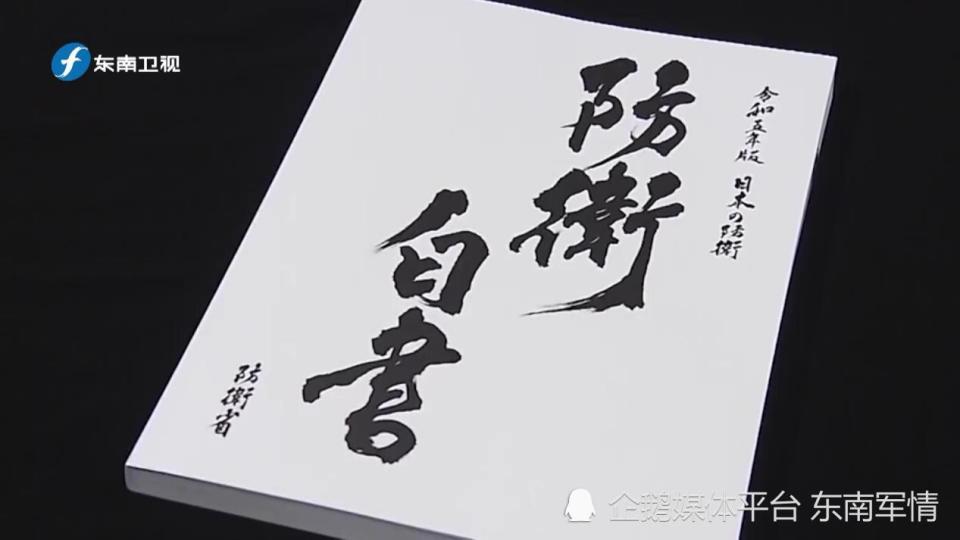 东南卫视
令和五年版 日本の防衛
防衛
白書
防衛省
企鹅媒体平台 东南军情